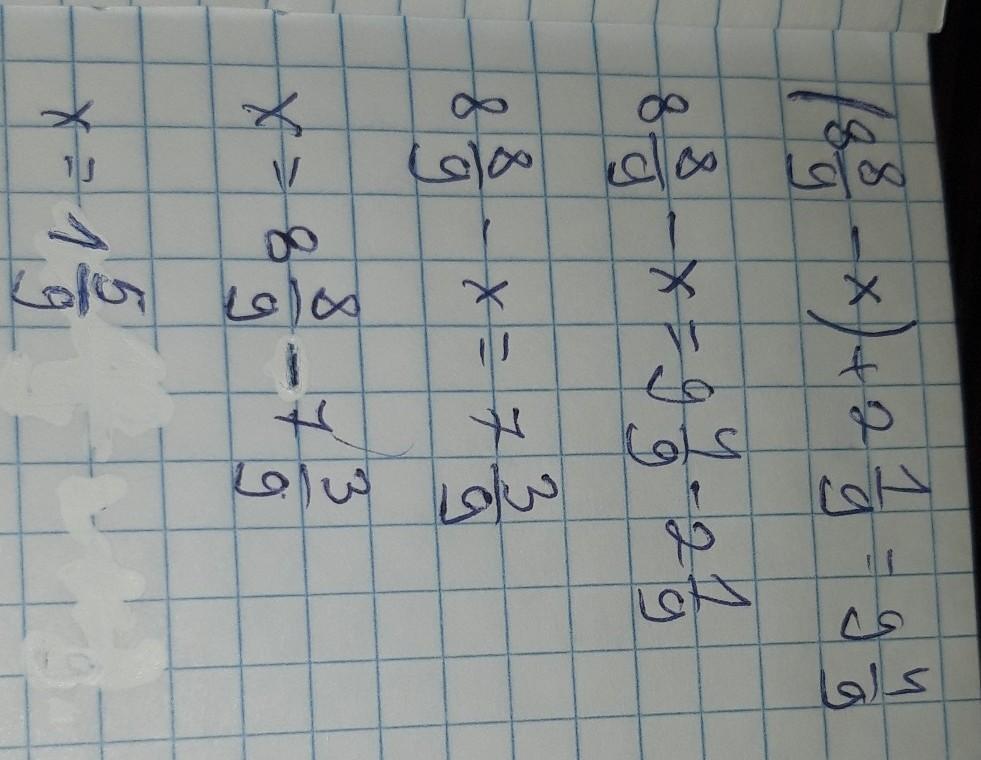 (8 8/9 - x) + 2 1/9 = 9 4/9
8 8/9 - x = 9 4/9 - 2 1/9
8 8/9 - x = 7 3/9
x = 8 8/9 - 7 3/9
x = 1 5/9